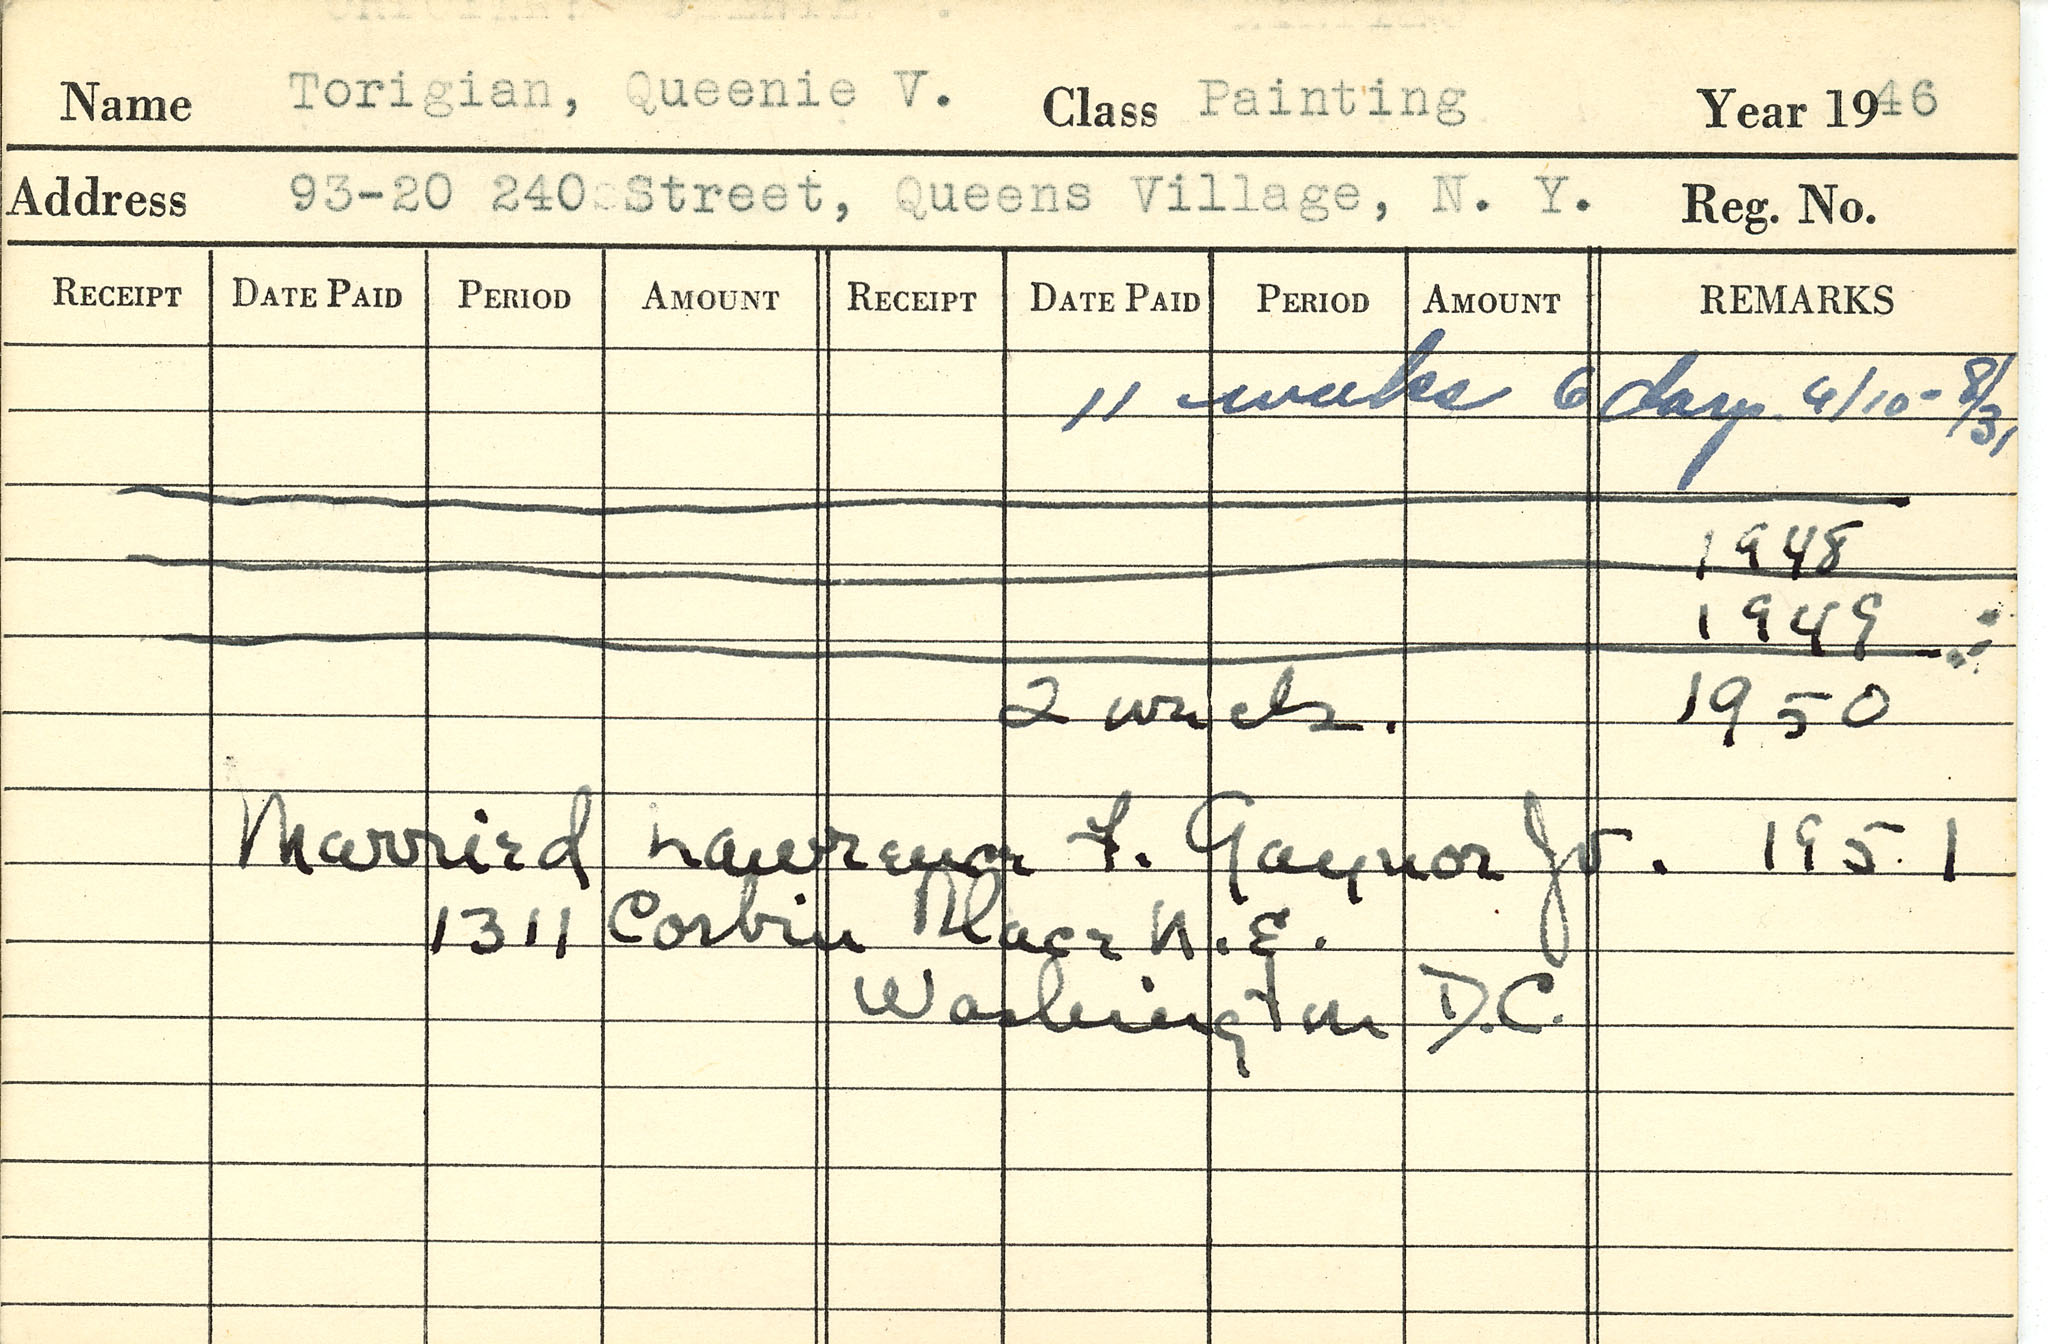 Name Torigian, Queenie V. Class Painting Year 1946
Address 93-20 240 Street, Queens Village, N. Y. Reg. No.
RECEIPT DATE PAID PERIOD AMOUNT RECEIPT DATE PAID PERIOD AMOUNT REMARKS
11 weeks 6 days 6/10 - 8/31
1948
1949
2 weeks. 1950
Married Lawrence F. Gaynor Jr. 1951
1311 Corbin Place N.E.
Washington D.C.